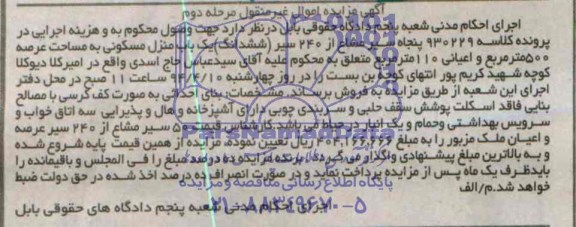 آگهی مزایده اموال غیرمنقول مرحله دوم
اجرای احکام مدنی شعبه پنجم دادگاه حقوقی بابل درنظر دارد جهت وصول محکوم به و هزینه اجرایی در
پرونده کلاسه ۹۳۰۲۲۹ پنجاه سیر مشاع از ۲۴۰ سیر (ششدانگ) یک باب منزل مسکونی به مساحت عرصه
۵۰۰مترمربع و اعیانی ۱۱۰مترمربع متعلق به محکوم علیه آقای سیدعباس حاج اسدی واقع در امیرکلا دیوکلا
کوچه شهید کریم پور انتهای کوچه بن بست را در روز چهارشنبه ۹۴/۴/۱۰ ساعت ۱۱ صبح در محل دفتر
اجرای این شعبه از طریق مزایده به فروش برساند. مشخصات: بنای احداثی به صورت کف کرسی با مصالح
بنایی فاقد اسکلت پوشش سقف حلبی و سربندی چوبی دارای آشپزخانه و هال و پذیرایی سه اتاق خواب و
سرویس بهداشتی وحمام و یک انبار در حیاط می باشد. کارشناس قیمت ۵۰ سیر مشاع از ۲۴۰ سیر عرصه
و اعیان ملک مزبور را به مبلغ ۴۰۴,۱۶۶,۶۶۶ ریال تعیین نموده. مزایده از همین قیمت پایه شروع شده
و به بالاترین مبلغ پیشنهادی واگذار می گردد. برنده مزایده ده درصد مبلغ را فی المجلس و باقیمانده را
بایدظرف یک ماه پس از مزایده پرداخت نماید و در صورت انصراف ده درصد اخذ شده در حق دولت ضبط
خواهد شد.م/الف
اجرای احکام مدنی شعبه پنجم دادگاه های حقوقی بابل
ParsNamadData
پایگاه اطلاع رسانی مناقصه و مزایده
۰۲۱-۸۸۳۴۹۶۷۰-۵